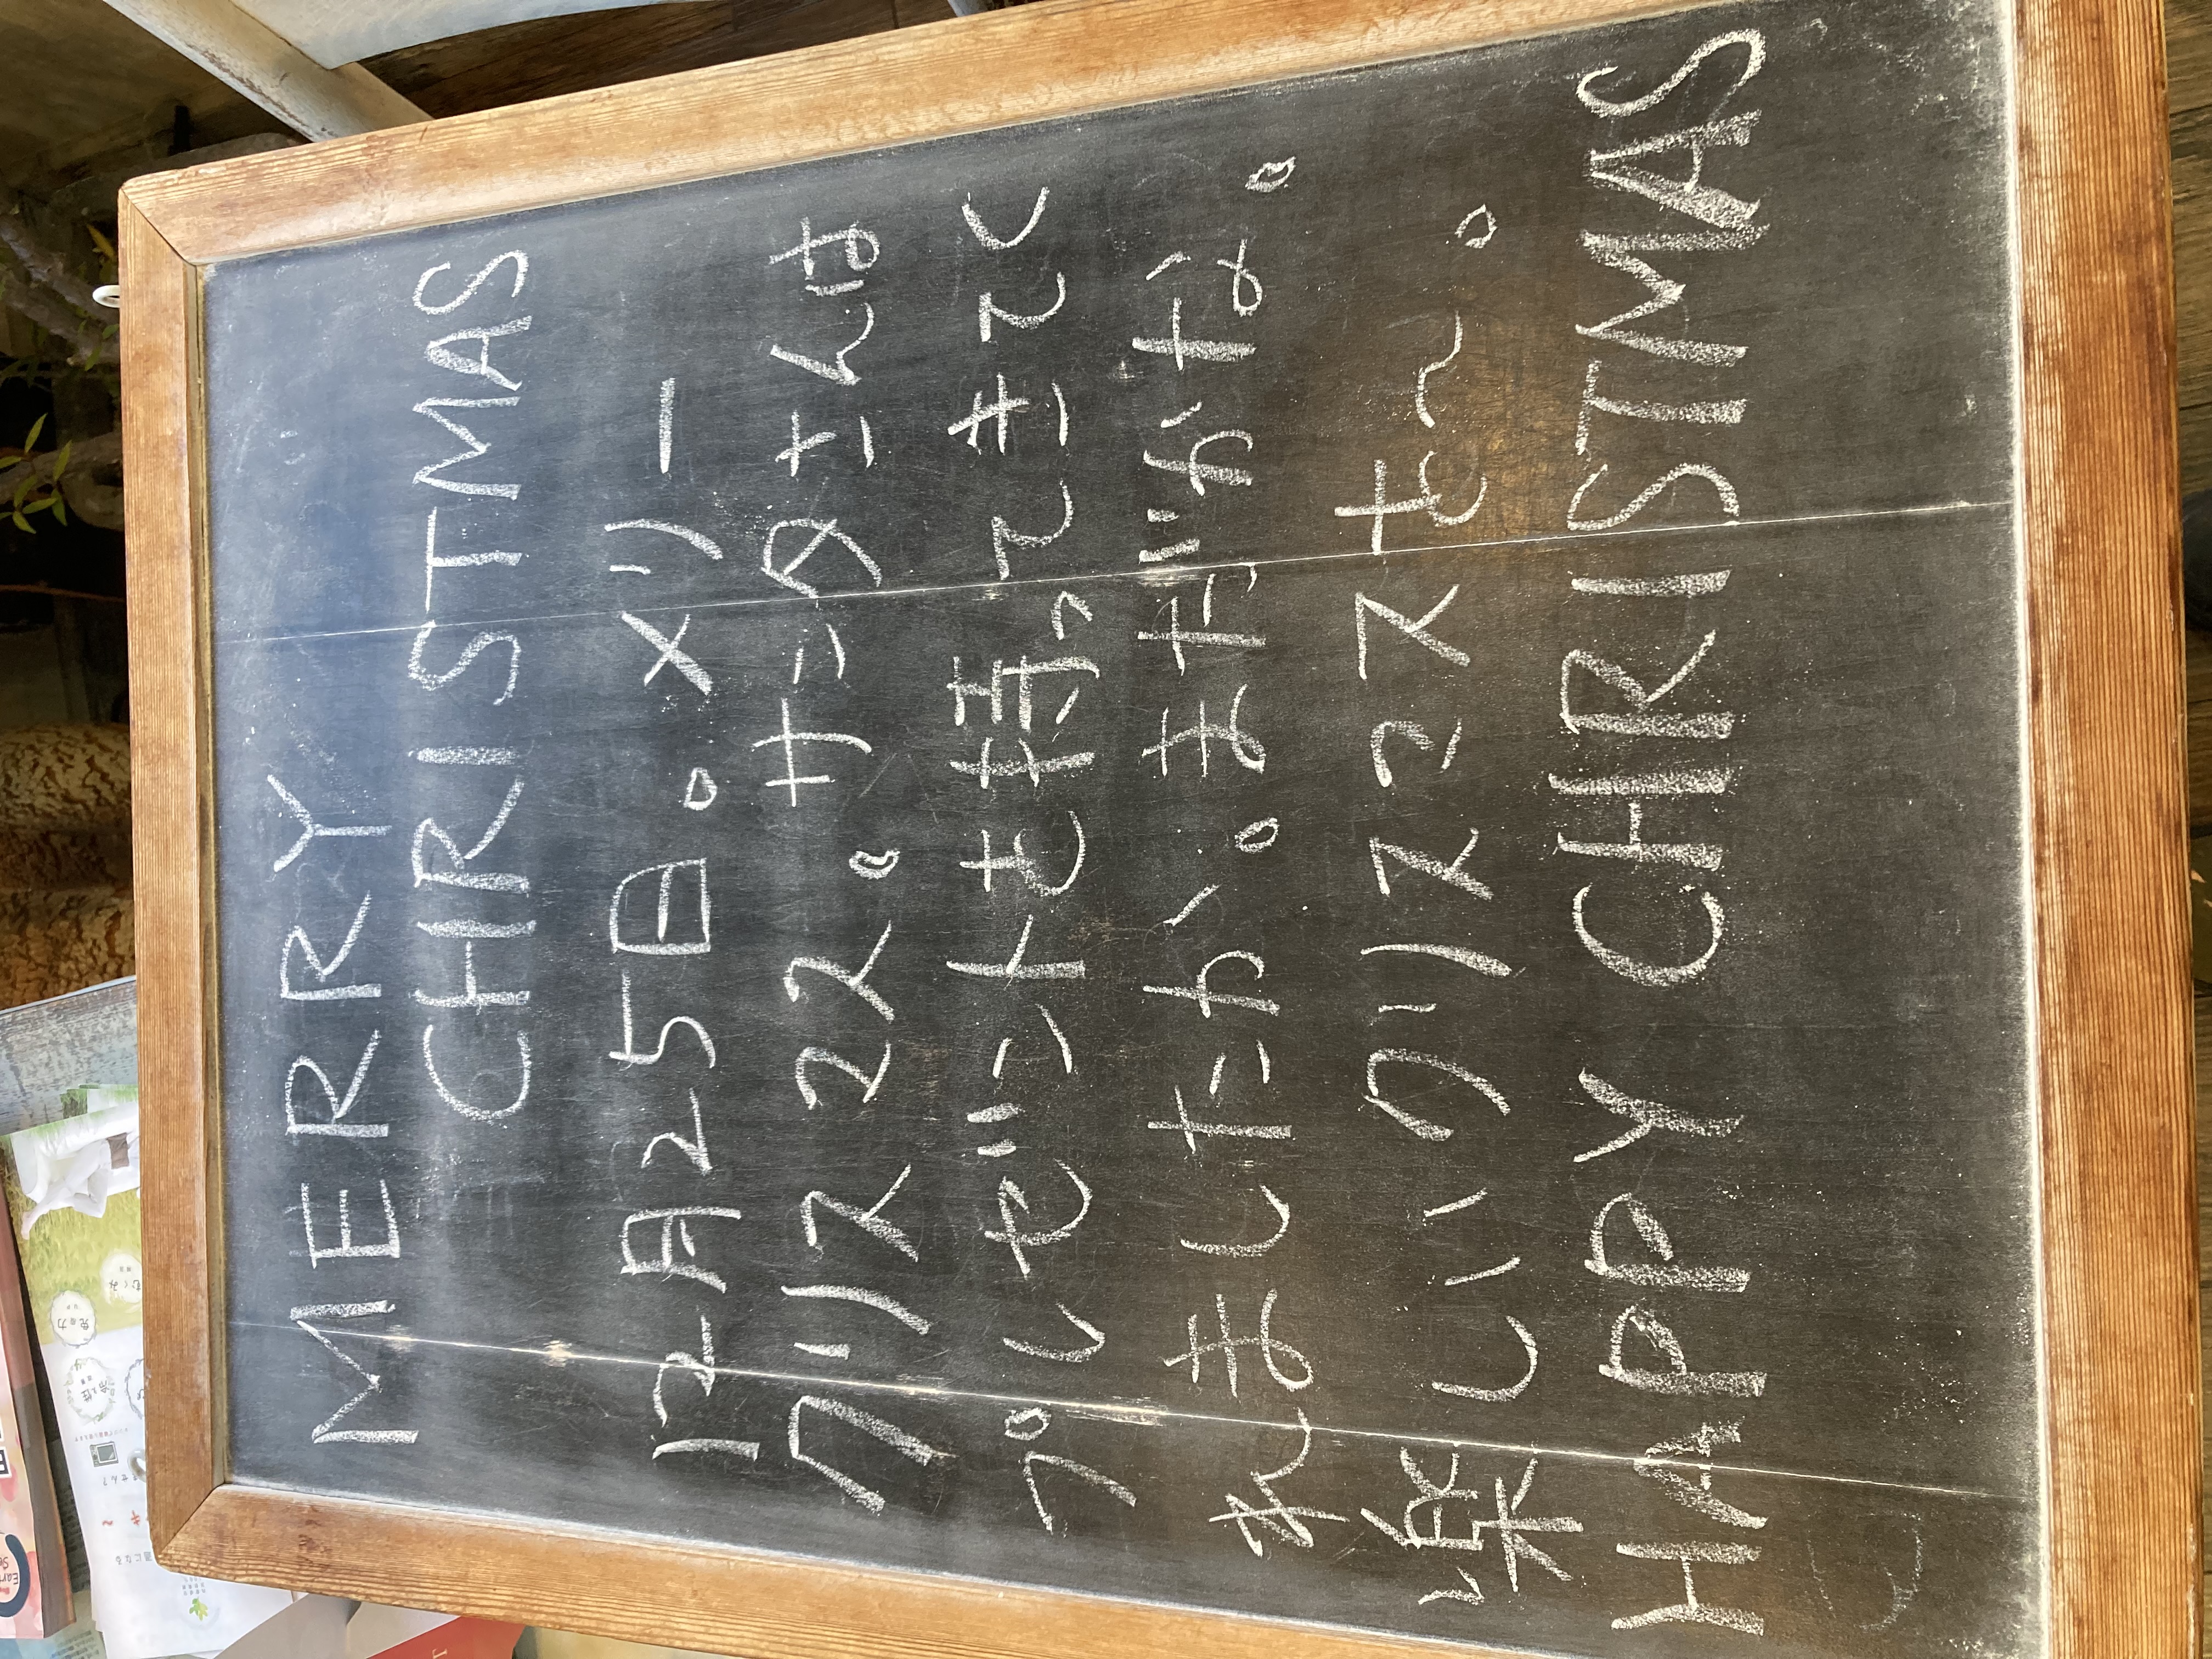 MERRY
CHRISTMAS
12月25日。メリー
クリスマス。サンタさんは
プレゼントも持ってきてく
れましたか。まだかな。
楽しいクリスマスを〜。
HAPPY CHRISTMAS
むくみ